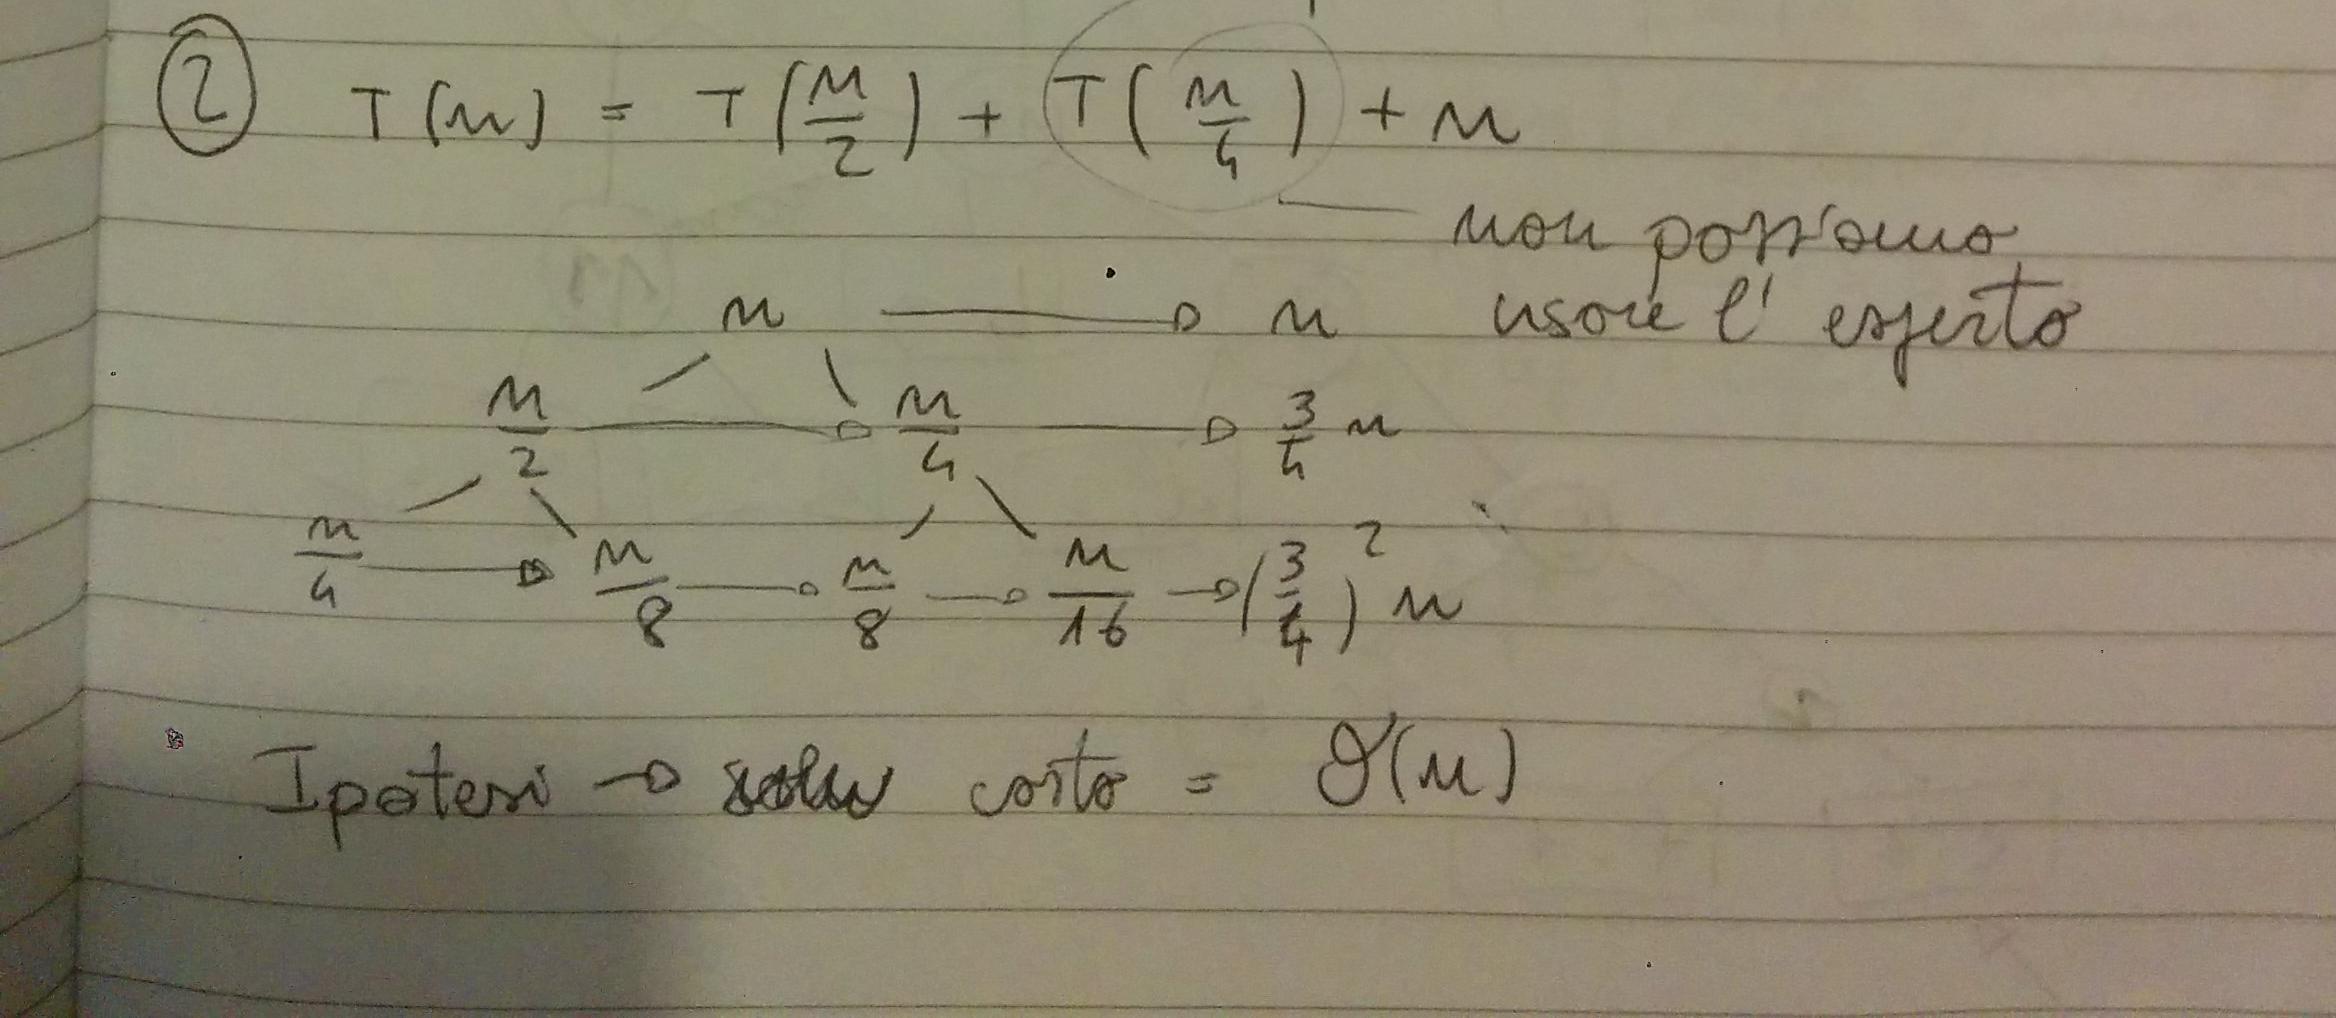 ② T(n) = T(n/2) + T(n/4) + n
non possiamo
n → n usare l' esperto
n/2 → n/4 → 3/4 n
n/4 → n/8 → n/8 → n/16 → (3/4)² n
Ipotesi → costo = O(n)